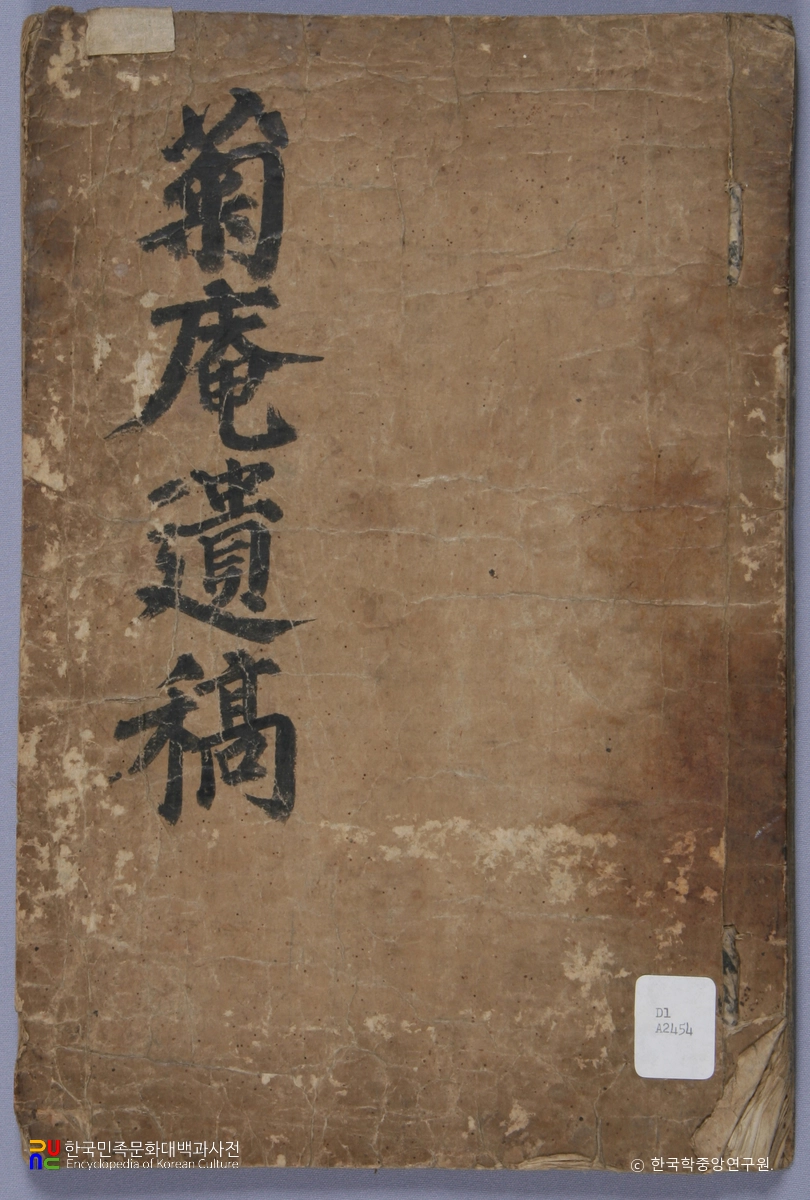 菊庵遺稿
D1
A2454
한국민족문화대백과사전
Encyclopedia of Korean Culture
© 한국학중앙연구원.